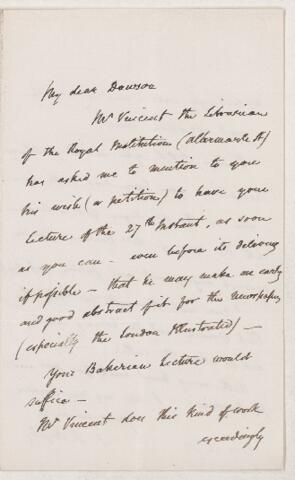 My dear Dawson
Mr Vincent the Librarian
of the Royal Institution (Albermarle St)
has asked me to mention to you
his wish (or petition) to have your
Lecture of the 27th Instant, as soon
as you can - even before its delivery
if possible - that he may make an early
and good abstract fit for the newspapers
(especially the London Illustrated) -
Your Bakerian Lecture would
suffice -
Mr Vincent does this kind of work
exceedingly